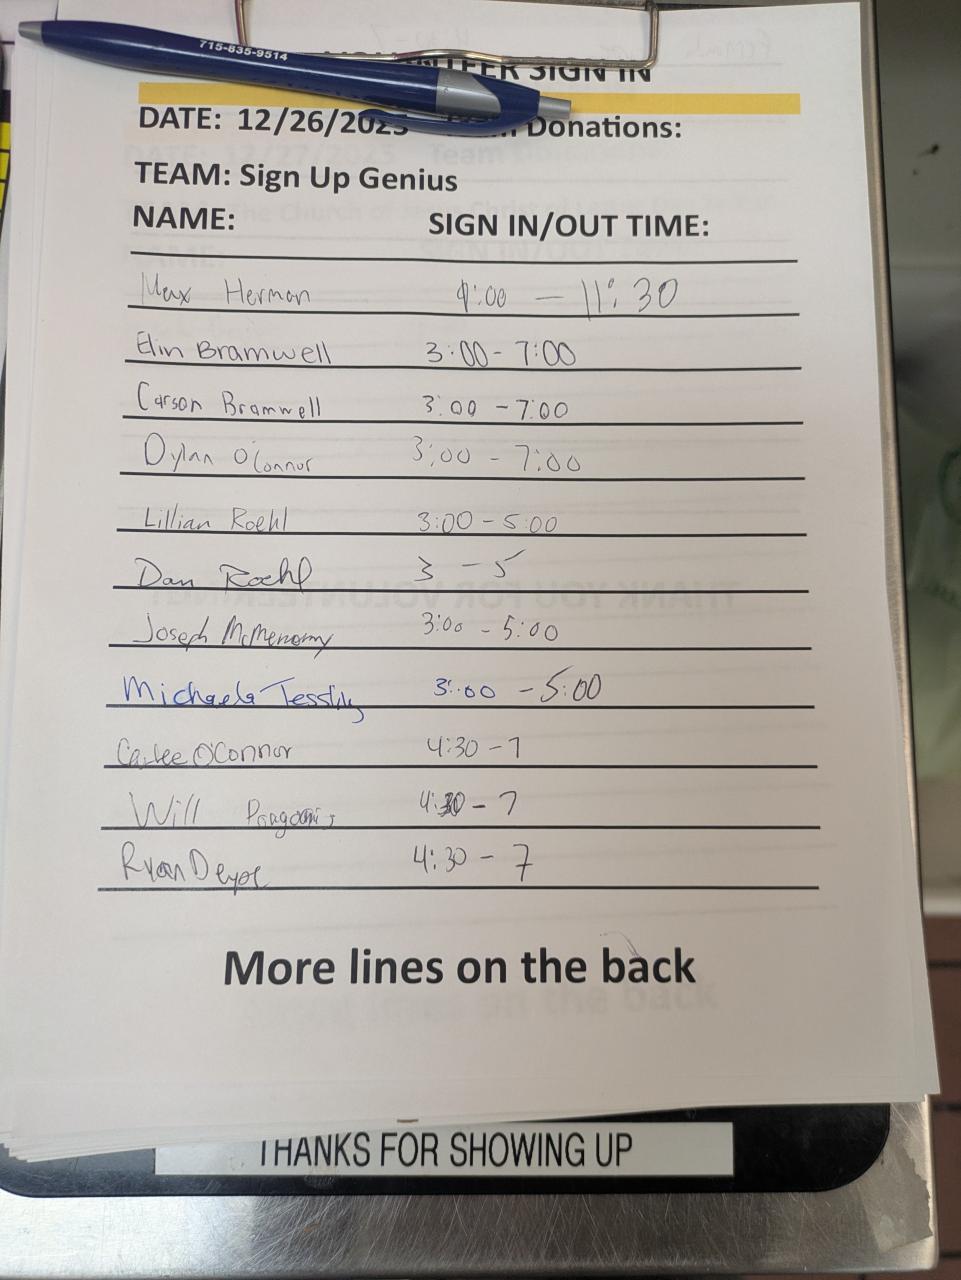 715-835-9514
SIGN IN
DATE: 12/26/2025 Donations:
TEAM: Sign Up Genius
NAME: SIGN IN/OUT TIME:
Max Herman 9:00 - 11:30
Elin Bramwell 3:00 - 7:00
Carson Bramwell 3:00 - 7:00
Dylan O'Connor 3:00 - 7:00
Lillian Roehl 3:00 - 5:00
Dan Roehl 3 - 5
Joseph McMenomy 3:00 - 5:00
Michaela 3:00 - 5:00
O'Connor 4:30 - 7
Will 4:30 - 7
Ryan 4:30 - 7
More lines on the back
THANKS FOR SHOWING UP